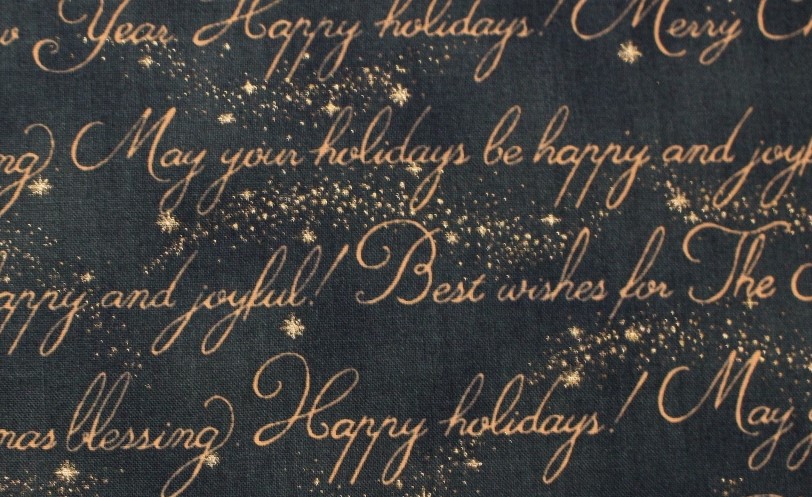 Year Happy holidays! Merry
May your holidays be happy and
and joyful! Best wishes for The
blessing Happy holidays! May